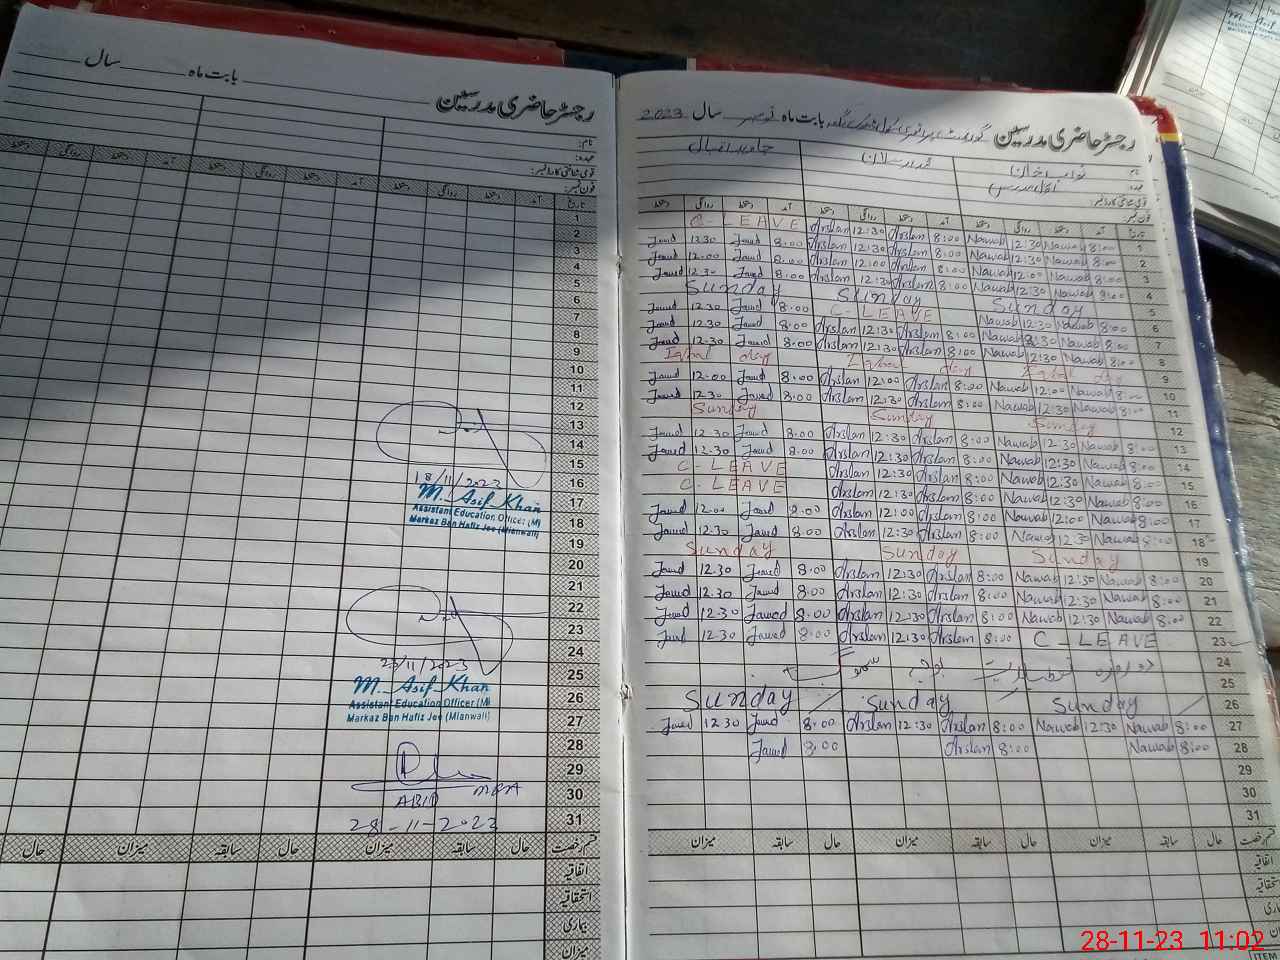 رجسٹر حاضری مدرسین بابت ماہ سال
نام:
عہدہ:
قومی شناختی کارڈ نمبر:
فون نمبر:
تاریخ آمد دستخط روانگی دستخط آمد دستخط روانگی دستخط
1
2
3
4
5
6
7
8
9
10
11
12
13
14
15
18/11/2023
16
M. Asif Khan
17
Assistant Education Officer (M)
18
Markaz Ban Hafiz Jee (Mianwali)
19
20
21
22
23
24
25
M. Asif Khan
26
Assistant Education Officer (M)
Markaz Ban Hafiz Jee (Mianwali)
27
28
29
30
ABID MEA
31
28-11-2023
قسم رخصت حال سابقہ میزان حال سابقہ میزان حال
اتفاقیہ
استحقاقیہ
بیماری
میزان
رجسٹر حاضری مدرسین بابت ماہ نومبر سال 2023
نام نواب خان
جاوید اقبال
عہدہ
قومی شناختی کارڈ نمبر
فون نمبر
تاریخ آمد دستخط روانگی دستخط آمد دستخط روانگی دستخط آمد دستخط روانگی دستخط
1 8:00 Nawab 12:30 Nawab 8:00 Arslan 12:30 Arslan C-LEAVE
2 8:00 Nawab 12:30 Nawab 8:00 Arslan 12:30 Arslan 8:00 Javed 12.30 Javed
3 8:00 Nawab 12:00 Nawab 8:00 Arslan 12:00 Arslan 8:00 Javed 12.00 Javed
4 8:00 Nawab 12:30 Nawab 8:00 Arslan 12:30 Arslan 8:00 Javed 12.30 Javed
5 Sunday Sunday Sunday
6 8:00 Nawab 12:30 Nawab C-LEAVE 8:00 Javed 12.30 Javed
7 8:00 Nawab 12:30 Nawab 8:00 Arslan 12:30 Arslan 8:00 Javed 12.30 Javed
8 8:00 Nawab 12:30 Nawab 8:00 Arslan 12:30 Arslan 8:00 Javed 12.30 Javed
9 Iqbal day Iqbal day Iqbal day
10 8:00 Nawab 12:00 Nawab 8:00 Arslan 12:00 Arslan 8:00 Javed 12.00 Javed
11 8:00 Nawab 12:30 Nawab 8:00 Arslan 12:30 Arslan 8:00 Javed 12.30 Javed
12 Sunday Sunday Sunday
13 8:00 Nawab 12:30 Nawab 8:00 Arslan 12:30 Arslan 8.00 Javed 12.30 Javed
14 8:00 Nawab 12:30 Nawab 8:00 Arslan 12:30 Arslan 8.00 Javed 12.30 Javed
15 8:00 Nawab 12:30 Nawab 8:00 Arslan 12:30 Arslan C-LEAVE
16 8:00 Nawab 12:30 Nawab 8:00 Arslan 12:30 Arslan C-LEAVE
17 8:00 Nawab 12:00 Nawab 8:00 Arslan 12:00 Arslan 8.00 Javed 12.00 Javed
18 8:00 Nawab 12.30 Nawab 8:00 Arslan 12:30 Arslan 8.00 Javed 12.30 Javed
19 Sunday Sunday Sunday
20 8:00 Nawab 12:30 Nawab 8:00 Arslan 12:30 Arslan 8.00 Javed 12.30 Javed
21 8:00 Nawab 12:30 Nawab 8:00 Arslan 12:30 Arslan 8.00 Javed 12.30 Javed
22 8:00 Nawab 12:30 Nawab 8:00 Arslan 12:30 Arslan 8.00 Javed 12.30 Javed
23 C-LEAVE 8:00 Arslan 12:30 Arslan 8:00 Javed 12.30 Javed
24
25
26 Sunday Sunday Sunday
27 8:00 Nawab 12:30 Nawab 8:00 Arslan 12:30 Arslan 8:00 Javed 12.30 Javed
28 8:00 Nawab 8:00 Arslan 8:00 Javed
29
30
31
قسم رخصت حال سابقہ میزان حال سابقہ میزان حال سابقہ میزان
اتفاقیہ
استحقاقیہ
بیماری
میزان
28-11-23 11:02